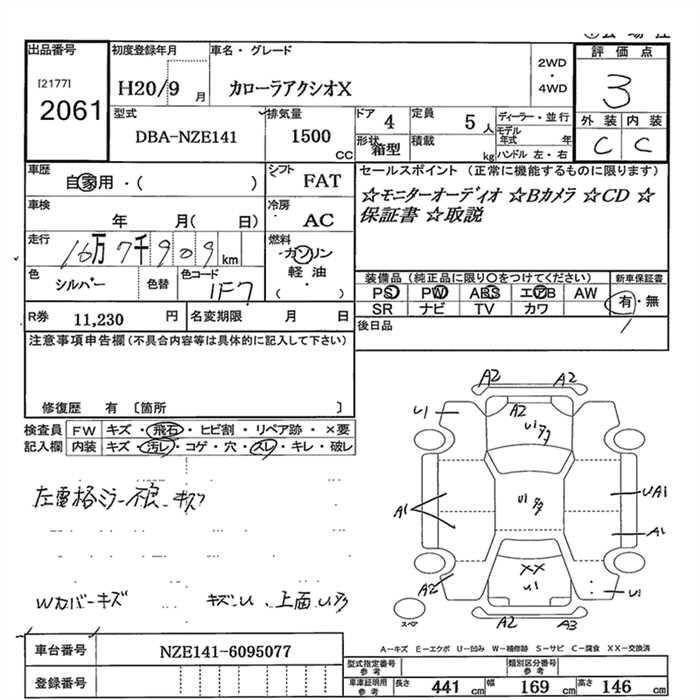 出品番号
[2177]
2061
初度登録年月
H20/9 月
車名・グレード
カローラアクシオX
2WD
・
4WD
評価点
3
外装 内装
C C
型式
DBA-NZE141
排気量
1500
CC
ドア 4
定員 5 人
形状 箱型
積載 kg
ディーラー・並行
モデル年式 年
ハンドル 左・右
車歴
自家用・( )
シフト FAT
セールスポイント (正常に機能するものに限ります)
☆モニターオーディオ ☆Bカメラ ☆CD ☆
保証書 ☆取説
車検
年 月( 日)
冷房 AC
走行 16万7千909 km
燃料
ガソリン
軽油
( )
色 シルバー
色替
色コード 1F7
装備品 (純正品に限り○をつけてください)
PS PW ABS エアB AW
SR ナビ TV カワ
新車保証書
有・無
R券 11,230 円
名変期限 月 日
後日品
注意事項申告欄(不具合内容等は具体的に記入して下さい)
修復歴 有 〔箇所 〕
検査員記入欄
FW キズ・飛石・ヒビ割・リペア跡・×要
内装 キズ・汚レ・コゲ・穴・スレ・キレ・破レ
Wカバーキズ
キズ・U、上面
A2 A2
U1 A2 A2
U1
U1
A1
UA1
A1
XX
U1
A2
U1
A2 A3
スペ
A-キズ E-エクボ U-凹み W-補修跡 S-サビ C-腐食 XX-交換済
車台番号 NZE141-6095077
登録番号
型式指定番号 参考
類別区分番号 参考
車庫証明用 参考
長さ 441 cm
幅 169 cm
高さ 146 cm